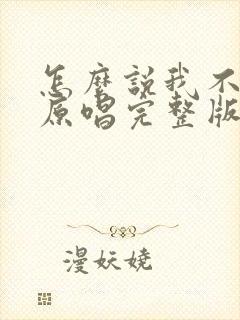 怎麼說我不
原唱完整版
漫妖嬈